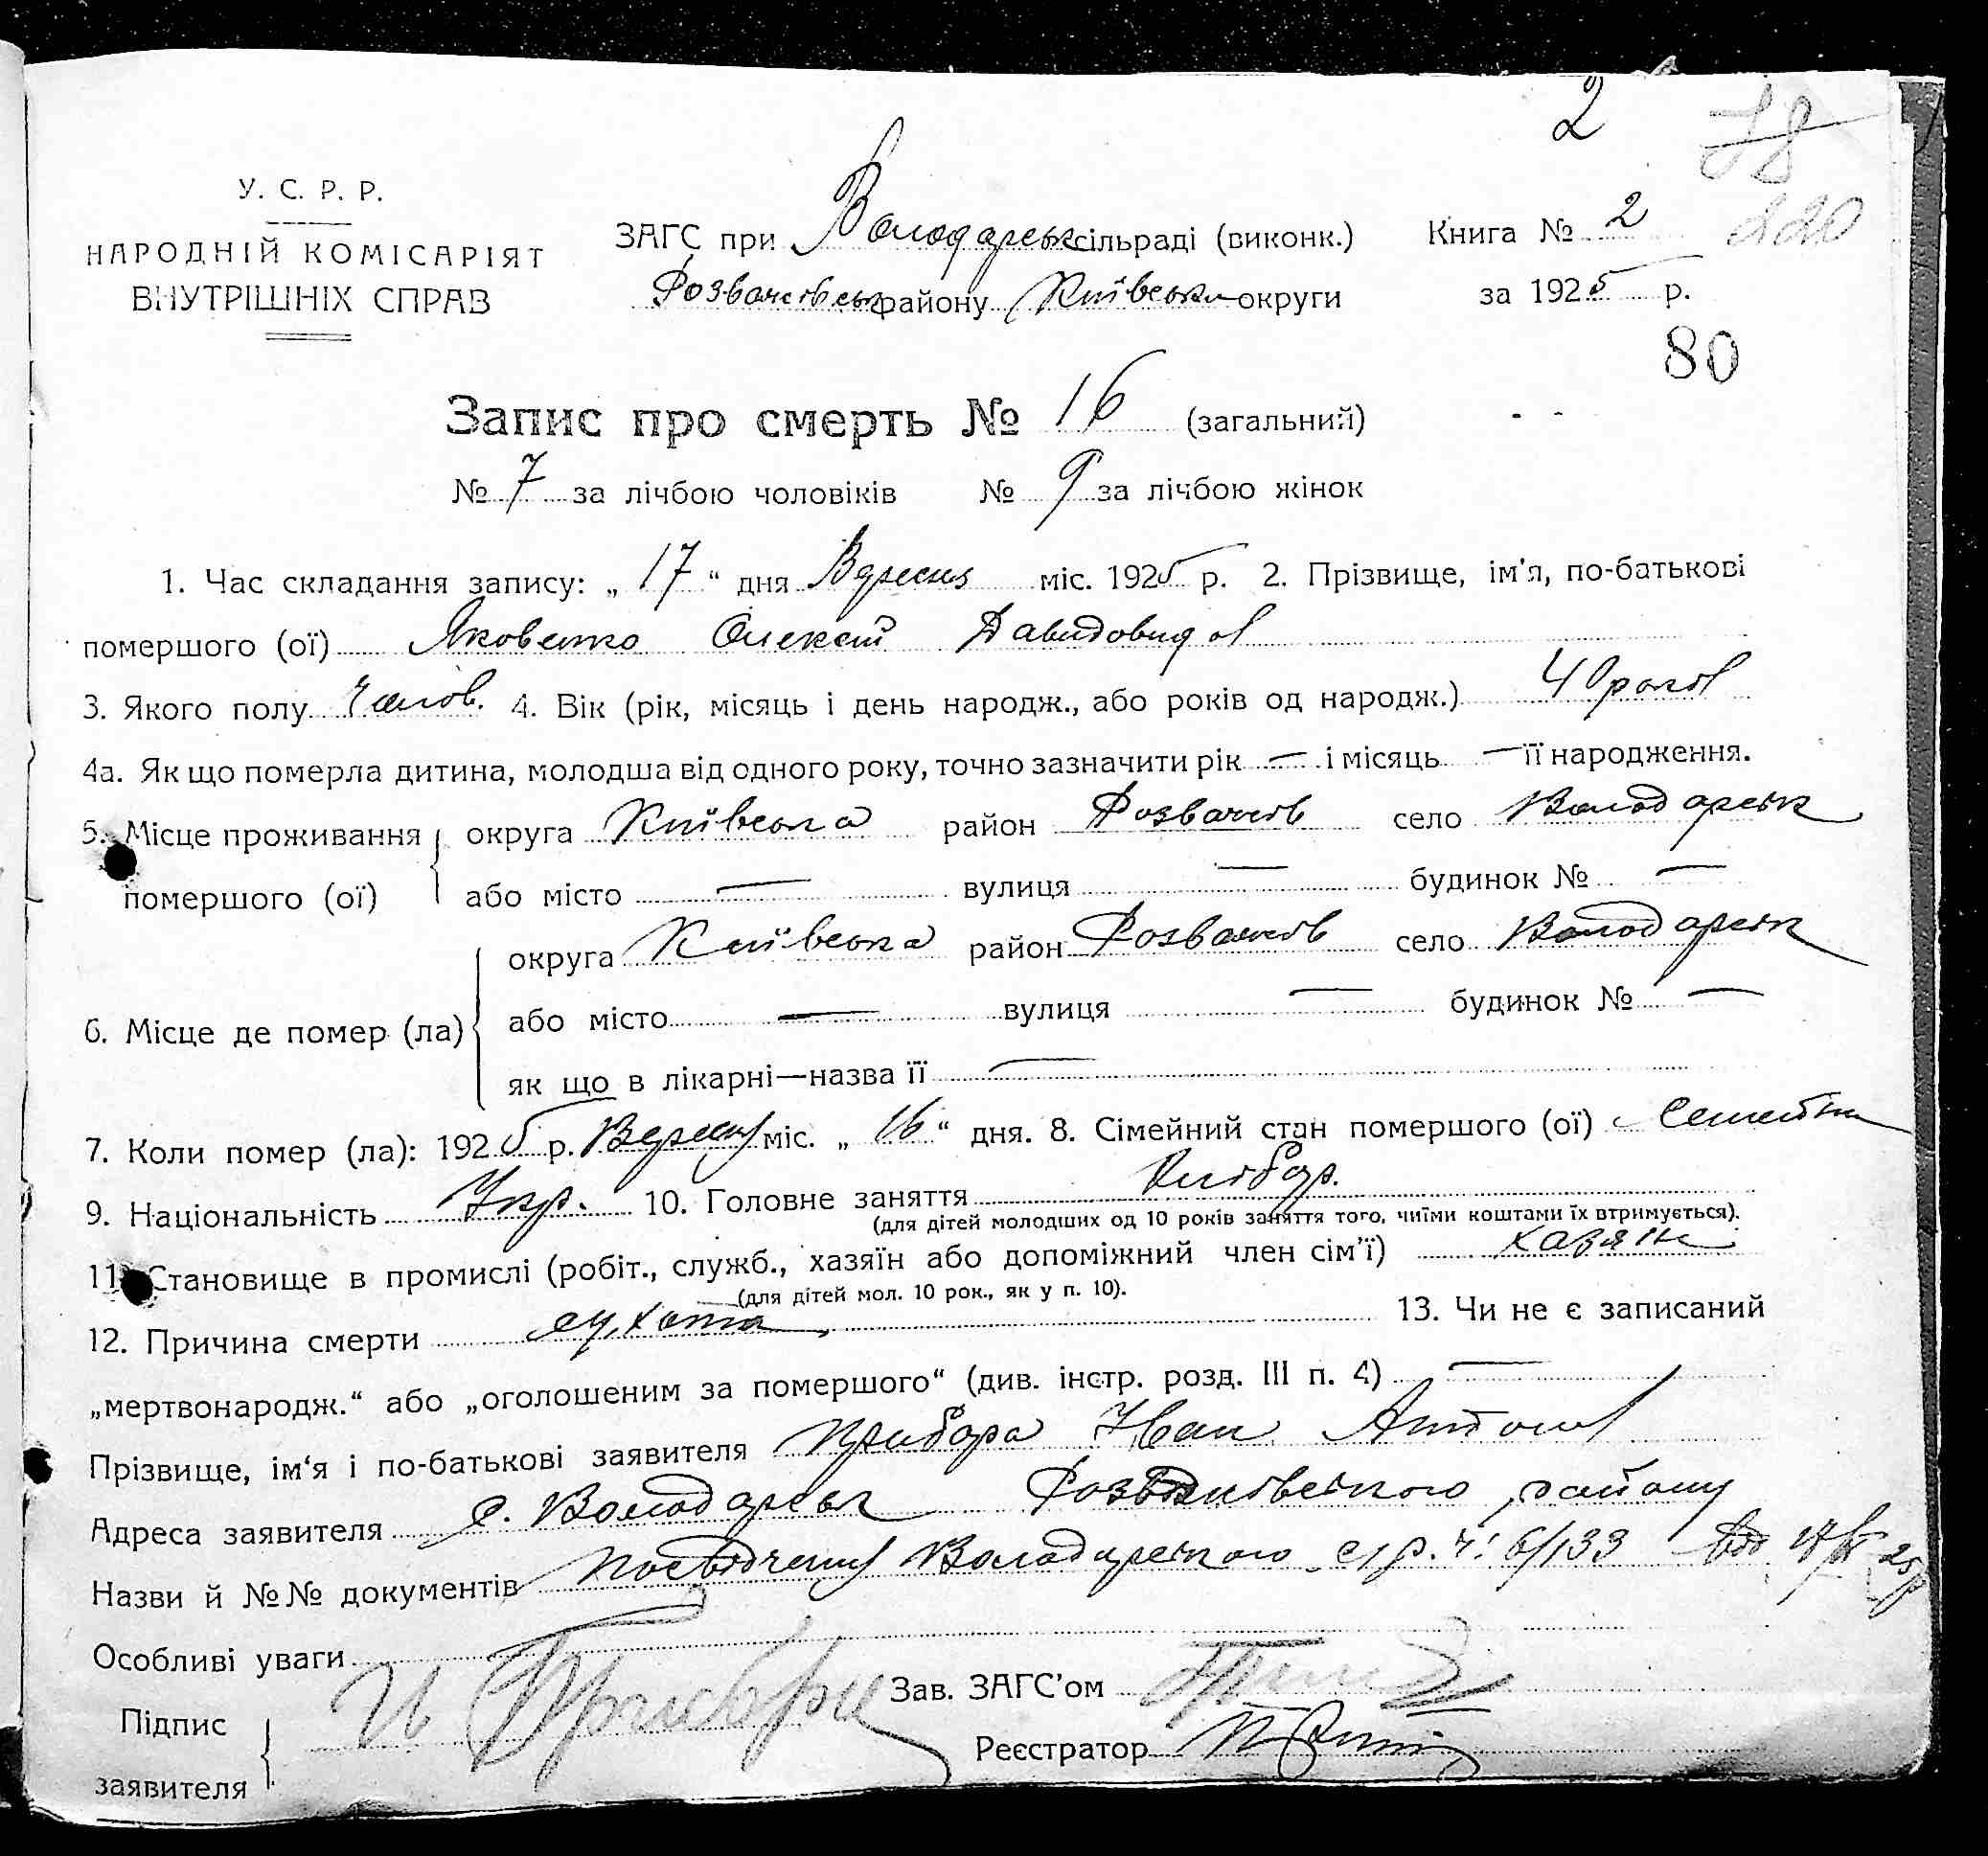 2
78
220
У. С. Р. Р.
НАРОДНІЙ КОМІСАРІЯТ
ВНУТРІШНІХ СПРАВ
ЗАГС при Володарськ сільраді (виконк.) Книга № 2
Розважівськ району Київськи округи за 1925 р.
80
Запис про смерть № 16 (загальний)
№ 7 за лічбою чоловіків № 9 за лічбою жінок
1. Час складання запису: „ 17 “ дня Вересня міс. 1925 р. 2. Прізвище, ім'я, по-батькові
помершого (ої) Яковенко Олексій
3. Якого полу Чолов. 4. Вік (рік, місяць і день народж., або років од народж.) 40 років
4а. Як що померла дитина, молодша від одного року, точно зазначити рік — і місяць — її народження.
5. Місце проживання помершого (ої) округа Київська район Розважів село Володарськ
або місто — вулиця — будинок № —
6. Місце де помер (ла) округа Київська район Розважів село Володарськ
або місто — вулиця — будинок № —
як що в лікарні—назва її —
7. Коли помер (ла): 1925 р. Вересня міс. „ 16 “ дня. 8. Сімейний стан помершого (ої)
9. Національність Укр. 10. Головне заняття Хлібор.
(для дітей молодших од 10 років заняття того, чиїми коштами їх втримується).
11. Становище в промислі (робіт., служб., хазяїн або допоміжний член сім'ї) хазяїн
(для дітей мол. 10 рок., як у п. 10).
12. Причина смерти сухота 13. Чи не є записаний
„мертвонародж.“ або „оголошеним за помершого“ (див. інстр. розд. III п. 4) —
Прізвище, ім'я і по-батькові заявителя Прибора Іван Антонов
Адреса заявителя с. Володарськ Розважівського району
Назви й №№ документів Посвідчення Володарського с/р. ч. 6/133 від
Особливі уваги
Підпис заявителя И Прибора
Зав. ЗАГС'ом
Реєстратор